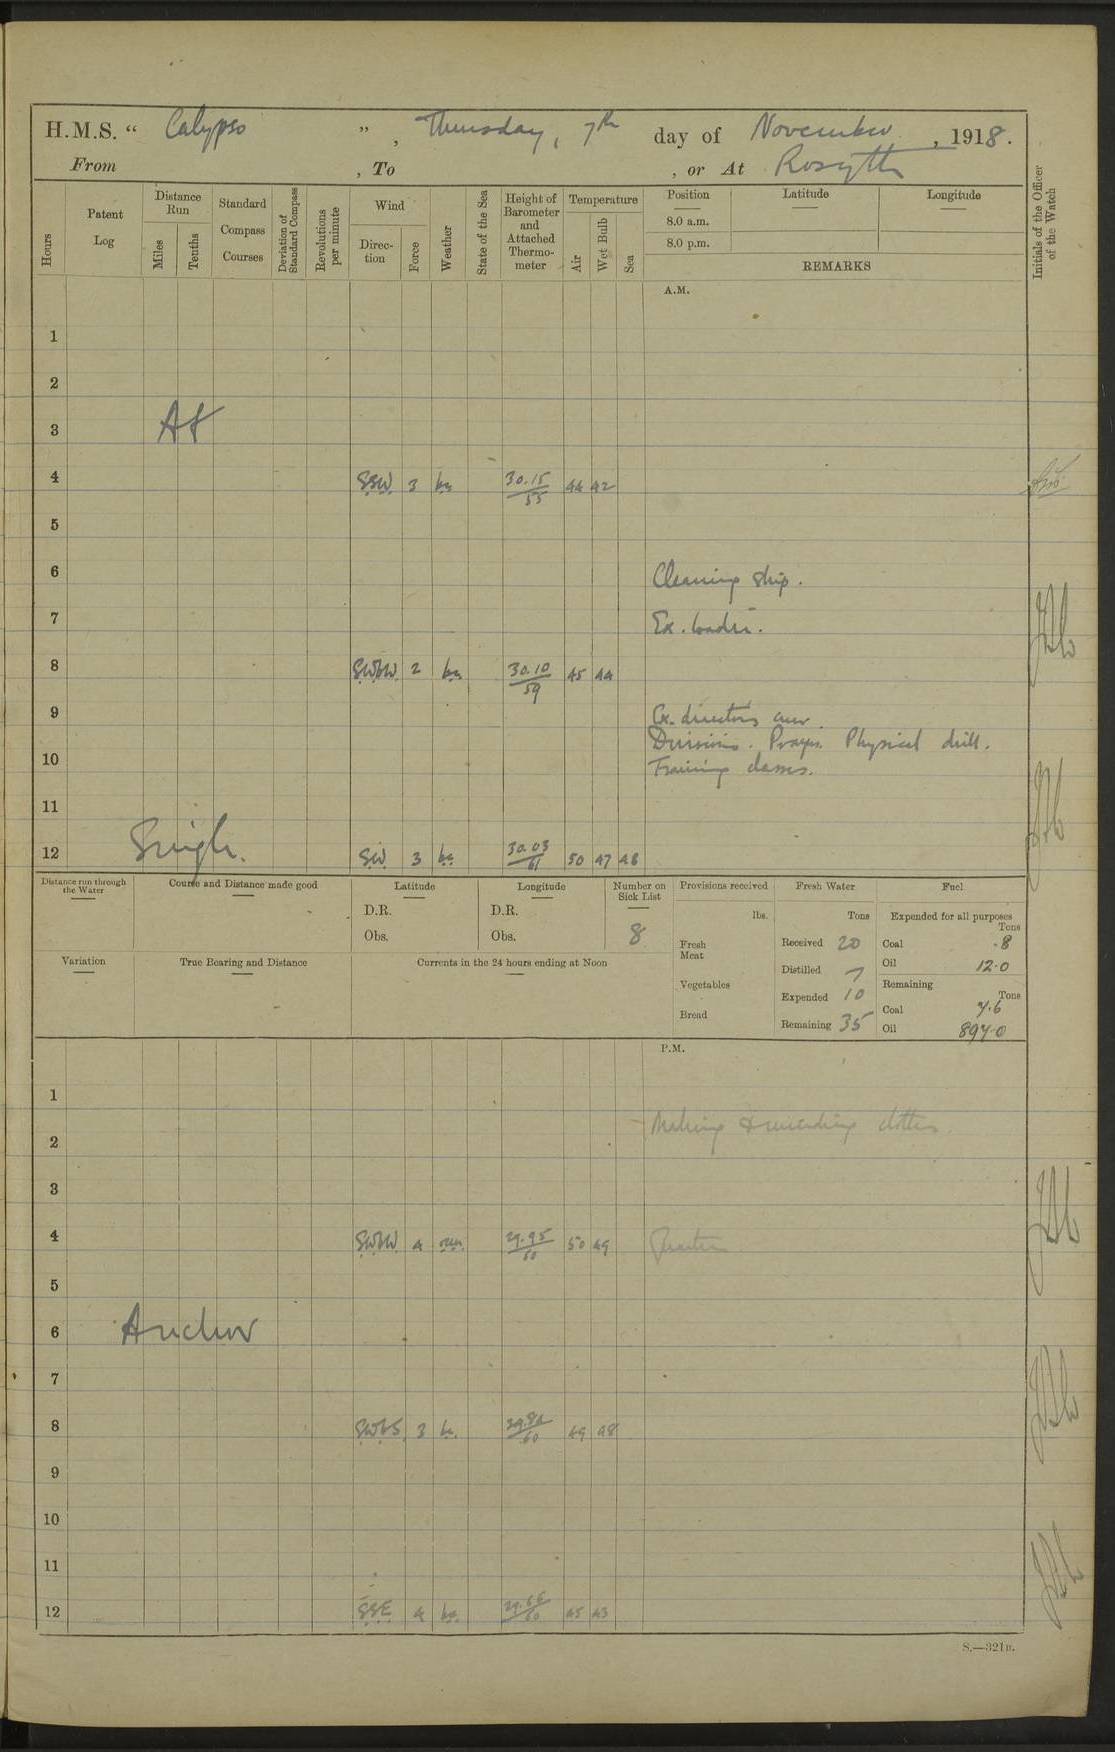 H.M.S. “ Calypso ” , Thursday, 7th day of November , 1918.
From , To , or At Rosyth
Hours
Patent Log
Distance Run
Miles
Tenths
Standard Compass Courses
Deviation of Standard Compass
Revolutions per minute
Wind
Direc-tion
Force
Weather
State of the Sea
Height of Barometer and Attached Thermo-meter
Temperature
Air
Wet Bulb
Sea
Position
Latitude
Longitude
8.0 a.m.
8.0 p.m.
REMARKS
Initials of the Officer of the Watch
A.M.
1
2
3 At
4 SSW 3 30.15/55 44 42
5
6 Cleaning ship.
7 Ex. loader.
8 SWbW 2 30.10/59 45 44
9
Divisions. Prayers. Physical drill.
10 Training classes.
11
12 Single. SW 3 bc 30.03/61 50 47 48
Distance run through the Water
Course and Distance made good
Latitude
D.R.
Obs.
Longitude
D.R.
Obs.
Number on Sick List
8
Provisions received
lbs.
Fresh Meat
Vegetables
Bread
Fresh Water
Tons
Received 20
Distilled 7
Expended 10
Remaining 35
Fuel
Expended for all purposes
Tons
Coal .8
Oil 12.0
Remaining
Tons
Coal 7.6
Oil 897.0
Variation
True Bearing and Distance
Currents in the 24 hours ending at Noon
P.M.
1
Making & mending clothes
2
3
4 SWbW 4 29.95/60 50 49 Quarters
5
6 Anchor
7
8 SWbS 3 60 49 48
9
10
11
12 SSE 4 60 45 43
S.—321B.